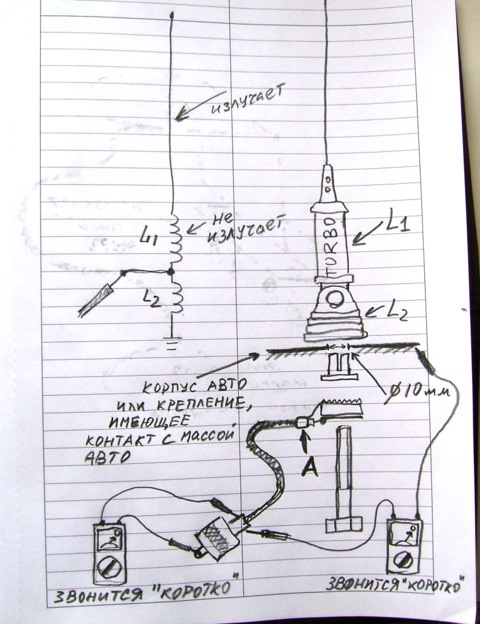 излучает
не
излучает
L1
L2
TURBO
L1
L2
корпус авто
или крепление,
имеющее
контакт с массой
авто
Ø10мм
A
звонится "коротко"
звонится "коротко"